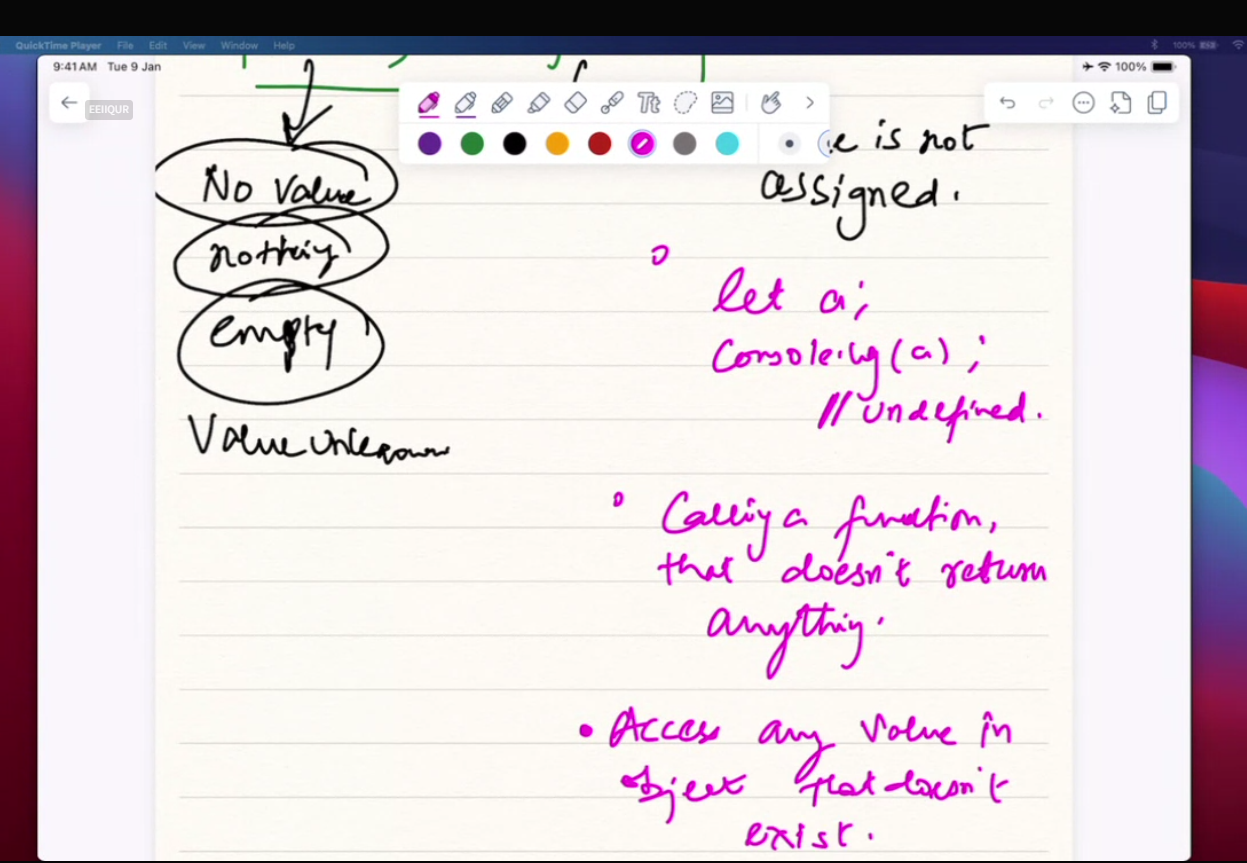 QuickTime Player File Edit View Window Help 100%
9:41 AM Tue 9 Jan 100%
EEIIQUR
Tt
e is not
assigned.
No Value
nothing
empty
Value unknown
let a;
Console.log(a);
// undefined.
Calling a function,
that doesn't return
anything.
Access any value in
object that doesn't
exist.